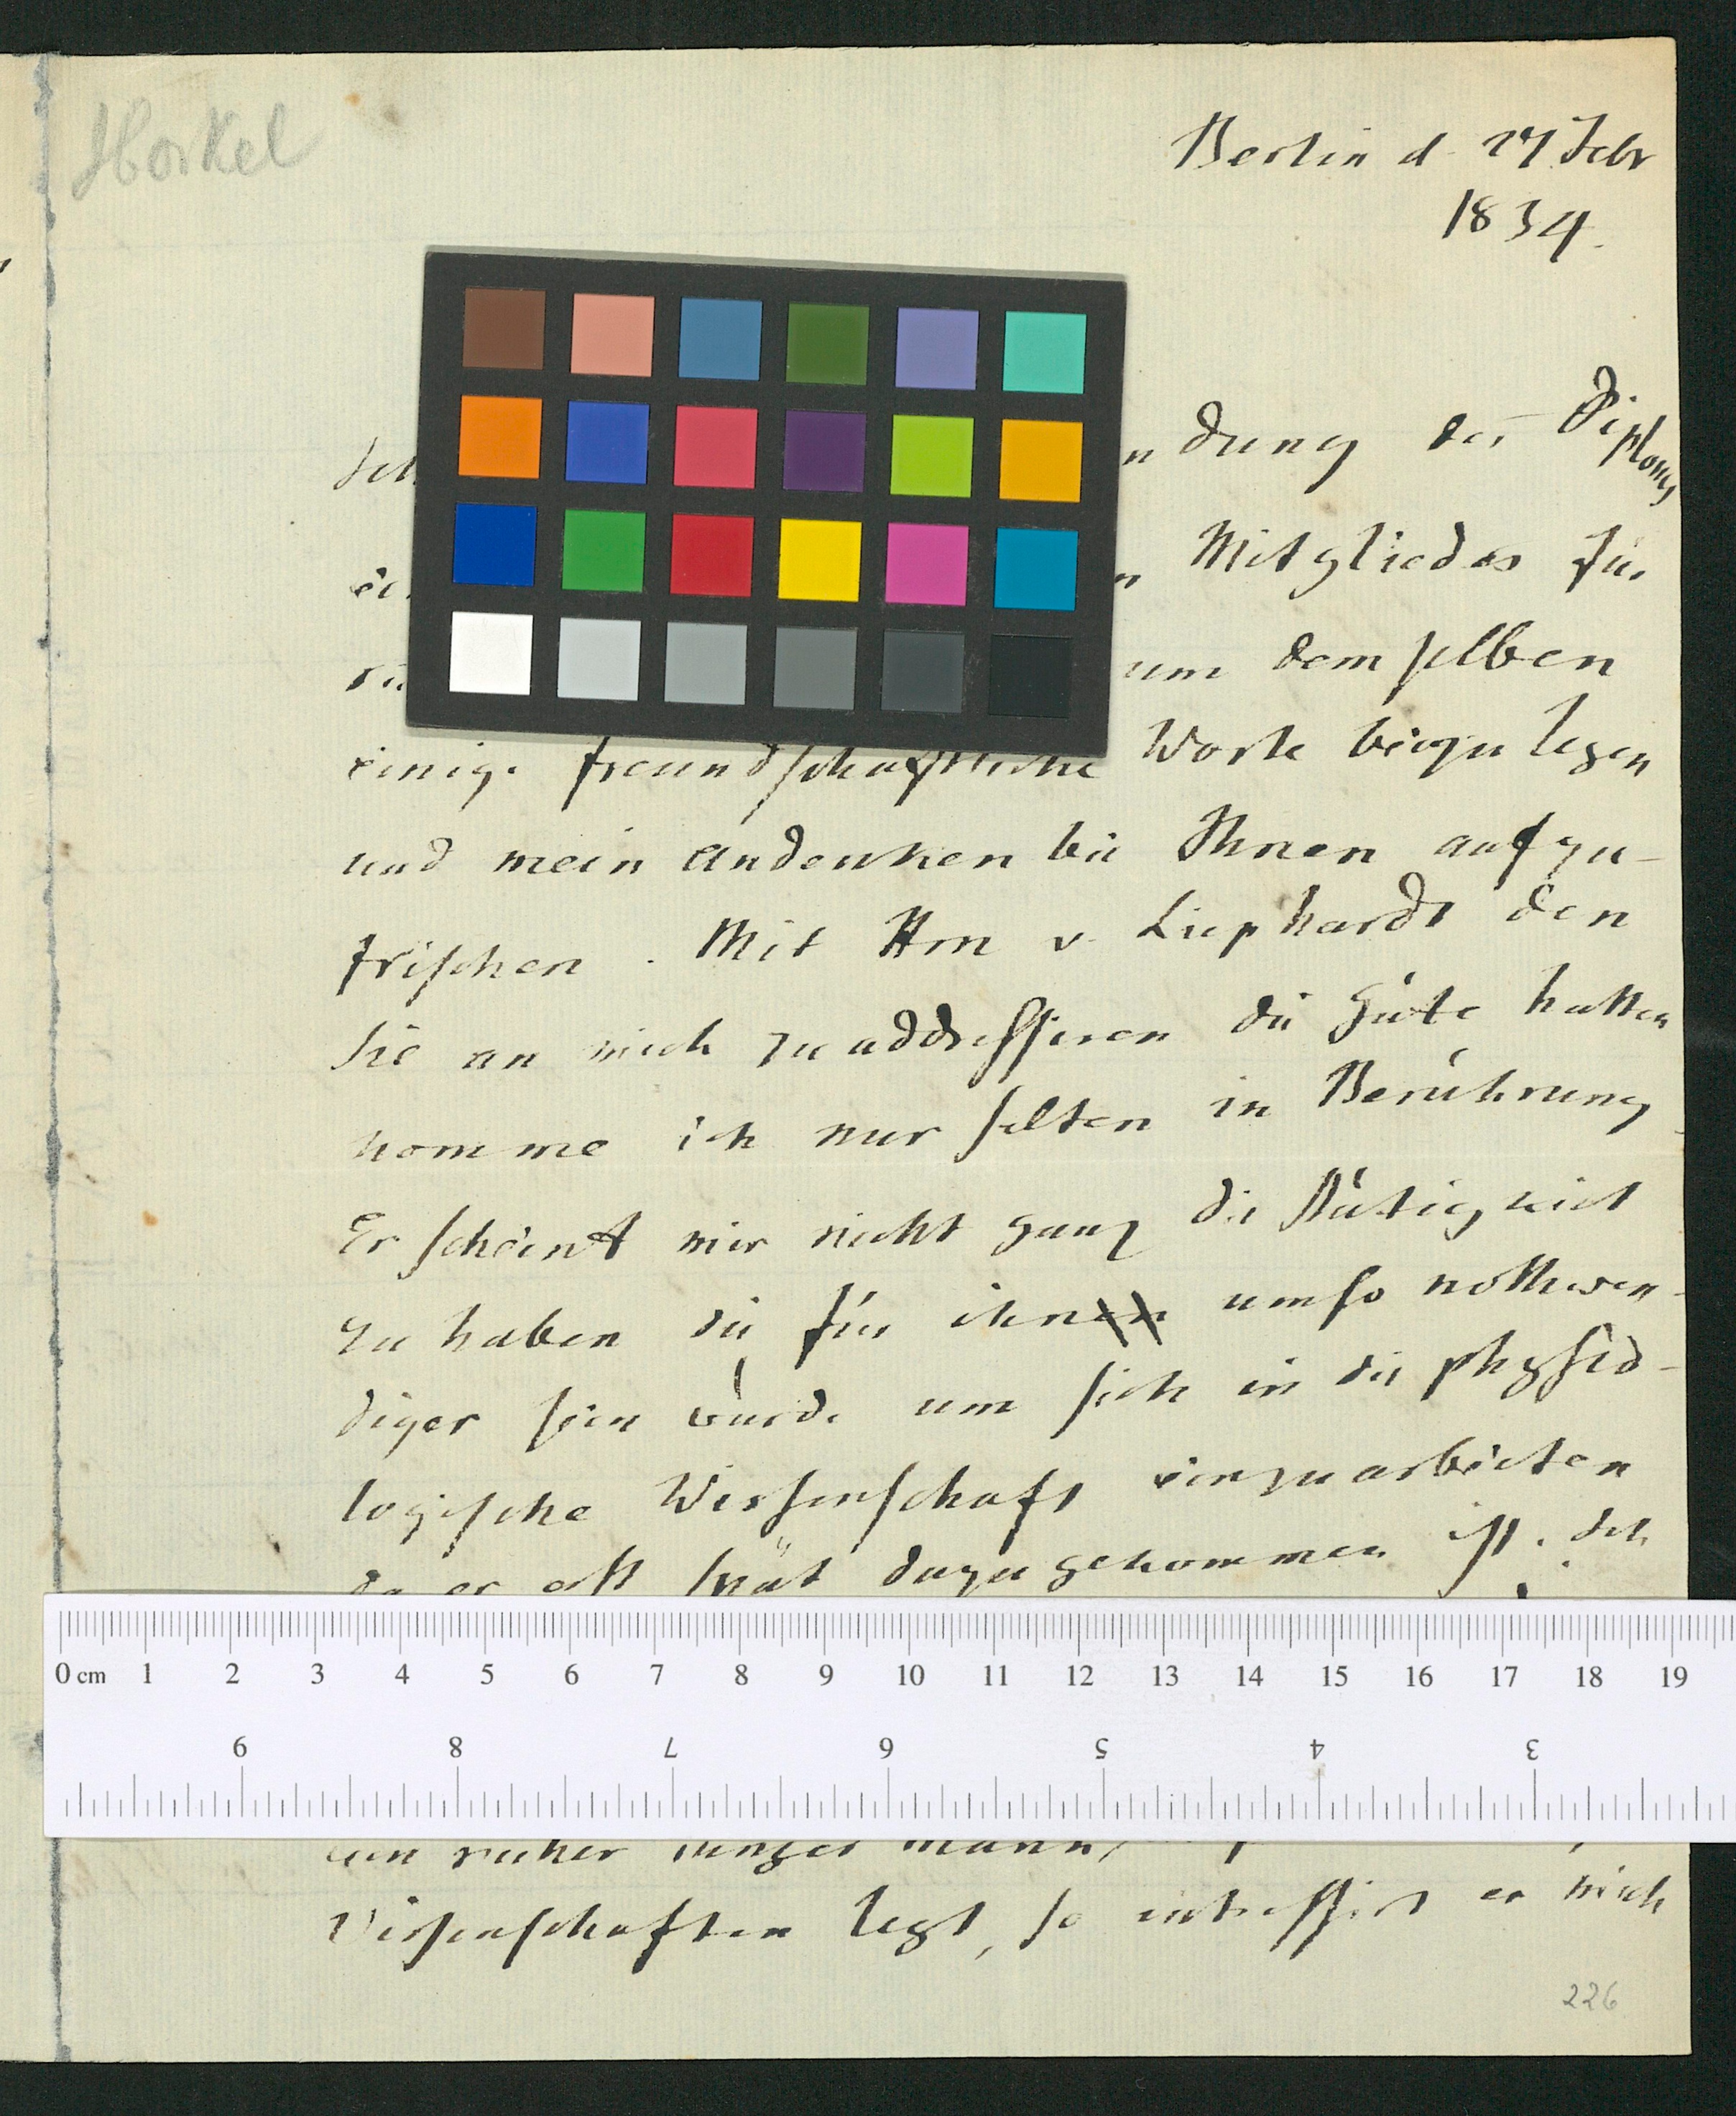 Horkel
Berlin d. 27 Febr
1834.
ndung des Diploms
n Mitgliedes für
um demselben
einige freundschaftliche Worte beizulegen
und mein Andenken bei Ihnen aufzu-
frischen. Mit Hrn v. Liephardt den
Sie an mich zu addressiren die Güte hatten
komme ich nur selten in Berührung
Er scheint mir nicht ganz die Stätigkeit
zu haben die für ihn umso nothwen-
diger sein würde um sich in die physio-
logische Wissenschaft einzuarbeiten
da er erst spät dazu gekommen ist. Ich
0 cm 1 2 3 4 5 6 7 8 9 10 11 12 13 14 15 16 17 18 19
9 8 7 6 5 4 3
ein reicher junger Mann,
Wissenschaften legt, so interessirt er mich
226